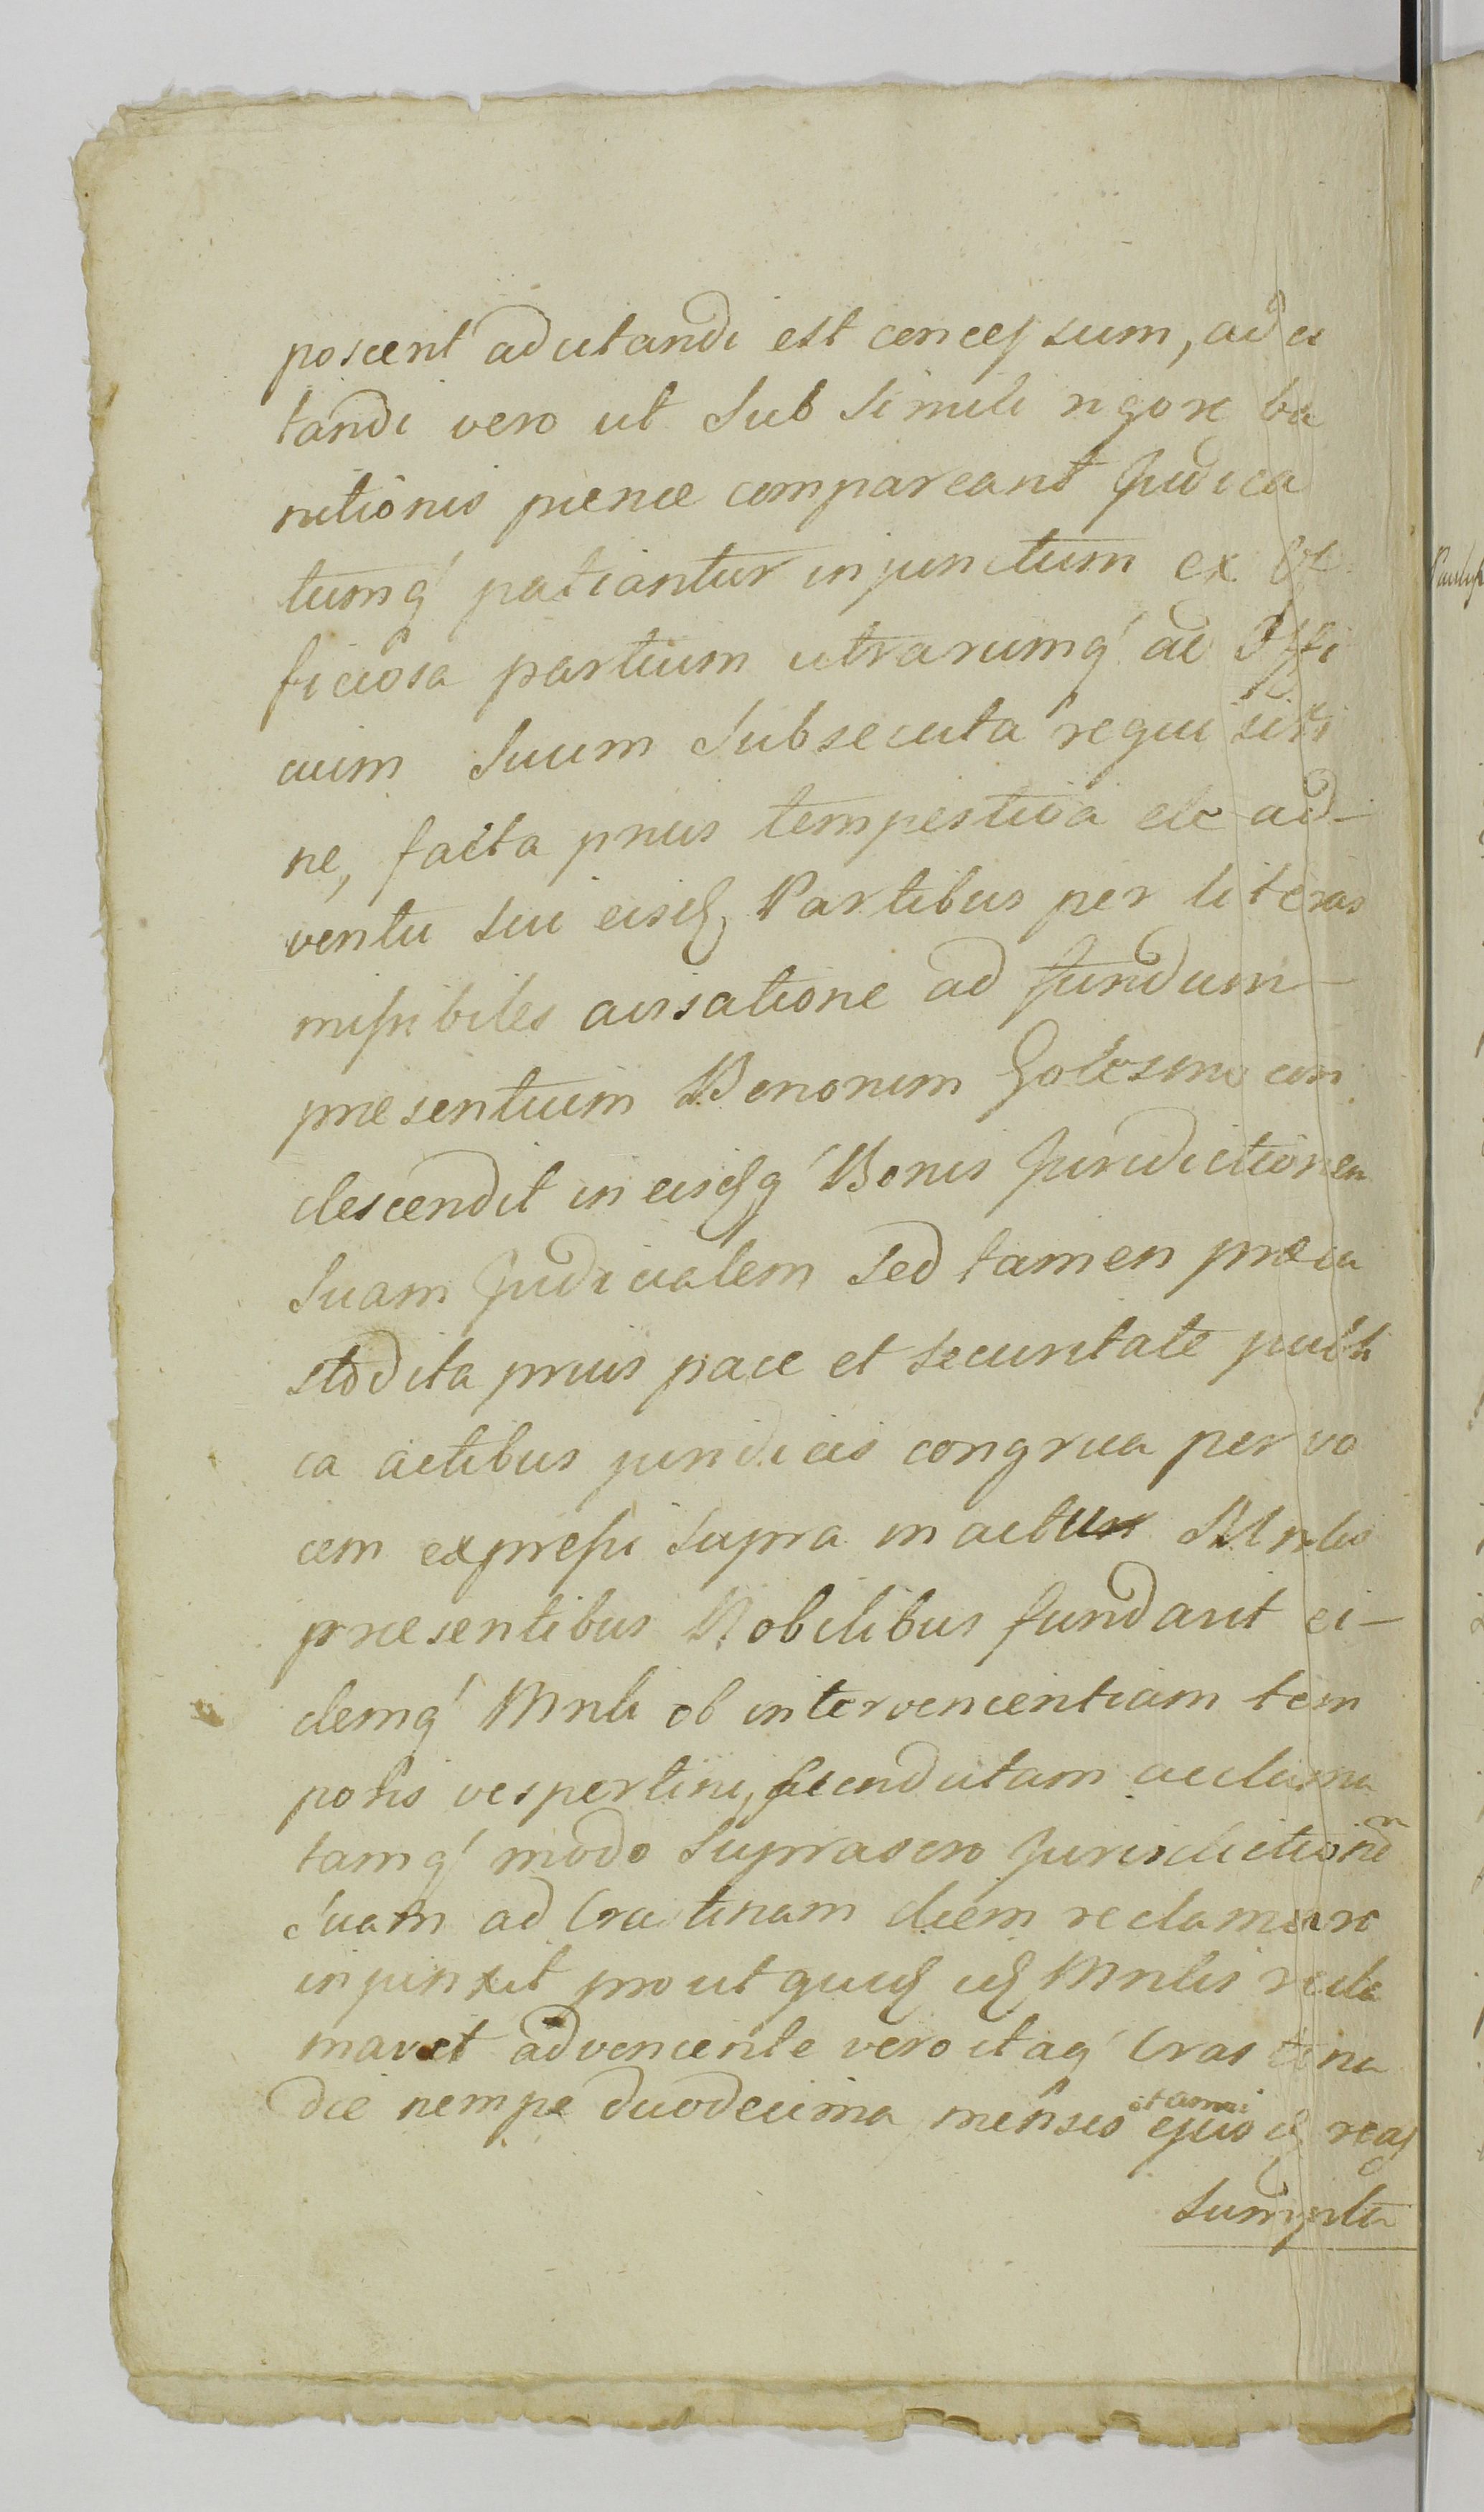 poscent adcitandi est concessum, adci
tandi vero ut sub simili rigore ba
nitionis pœnæ compareant Judica
tumq́ patiantur injunctum ex Of
ficiosa partium utrarumq́ ad Offi
cium suum subsecuta requisitio
ne, facta prius tempestiva de ad-
ventu sui eisd. Partibus per literas
missibiles avisatione ad fundum
præsentium Bonorum Golesino con
descendit in eisdq́ Bonis Jurisdictionem
suam Judicialem sed tamen præcu
stodita prius pace et securitate publi
ca actibus juridicis congrua per vo
cem expressi supra in actu Mnlis
præsentibus Nobilibus fundavit ei-
demq́ Mnli ob intervenientiam tem
poris vespertini, fundatam acclama
tamq́ modo suprascro Jurisdictionem
suam ad Crastinam diem reclamare
injunxit prout quid. id. Mnlis recla
mavit adveniente vero itaq́ Crastina
die nempe duodecima mensis et anni ejusd. reas
sumpta